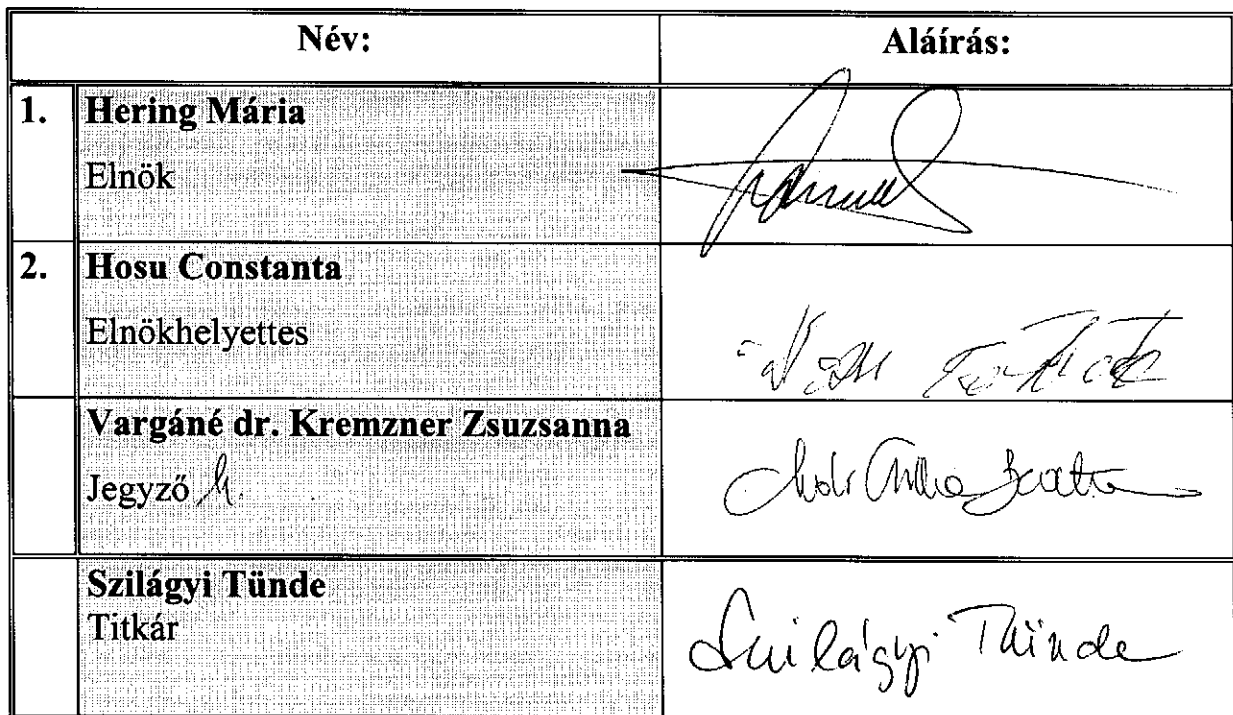 Név: Aláírás:
1. Hering Mária
Elnök
2. Hosu Constanta
Elnökhelyettes
Vargáné dr. Kremzner Zsuzsanna
Jegyző h.
Szilágyi Tünde
Titkár
Szilágyi Tünde